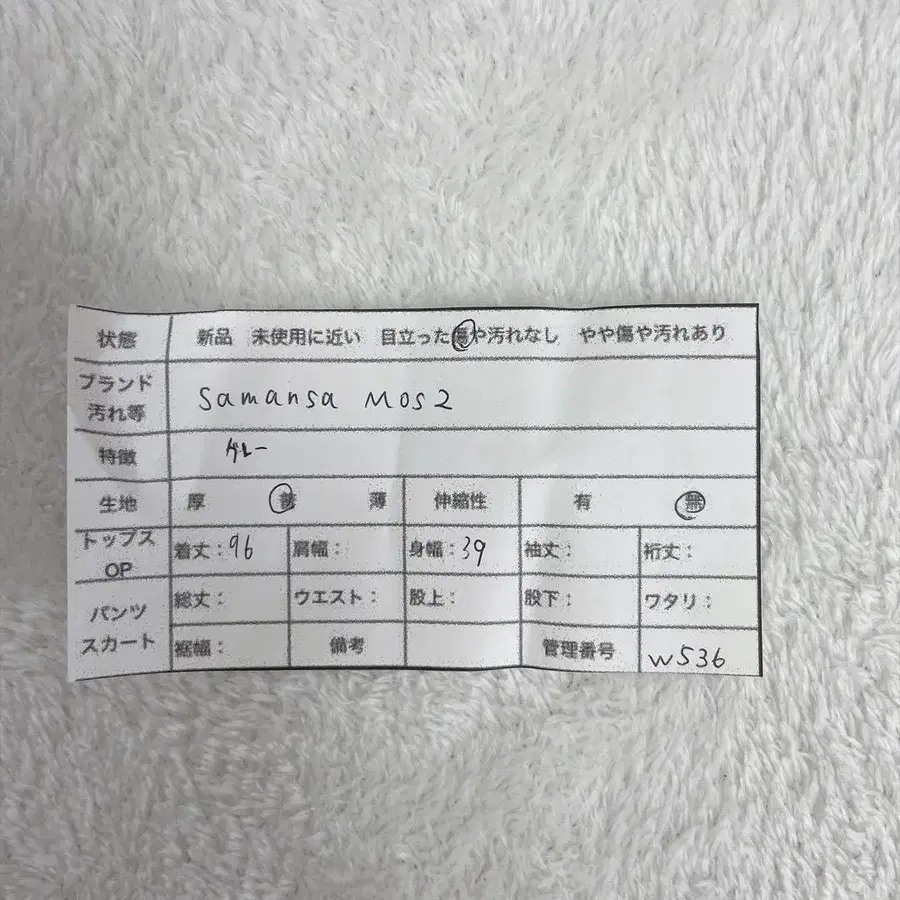 状態 新品 未使用に近い 目立った傷や汚れなし やや傷や汚れあり
ブランド
汚れ等
samansa Mos2
特徴 グレー
生地 厚 普 薄 伸縮性 有 無
トップス
OP
着丈:96 肩幅: 身幅:39 袖丈: 裄丈:
パンツ
スカート
総丈: ウエスト: 股上: 股下: ワタリ:
裾幅: 備考 管理番号 W536